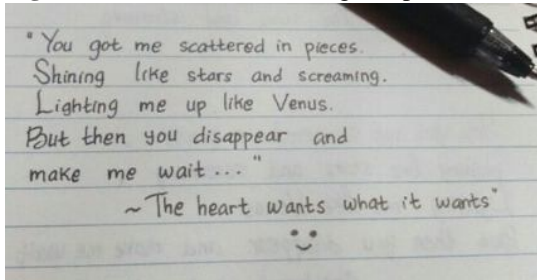 "You got me scattered in pieces.
Shining like stars and screaming.
Lighting me up like Venus.
But then you disappear and
make me wait..."
~The heart wants what it wants"